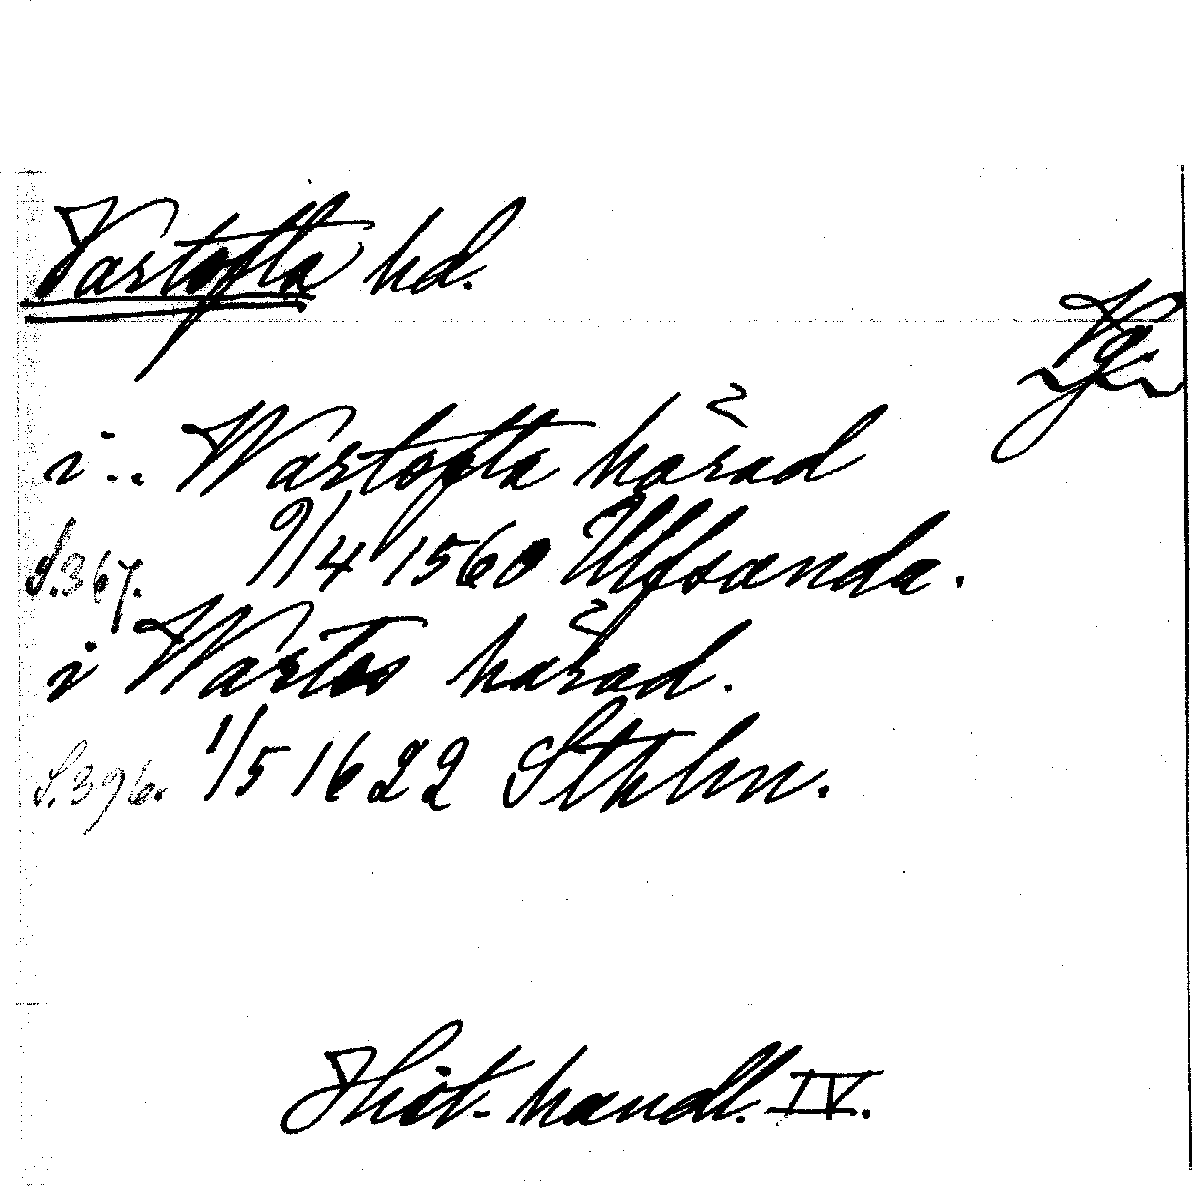 Vartofta hd.
Vg.
i.. Wartofta härad
S.367. 9/4 1560 Ulfsanda.
i Wartos härad.
S.396. 1/5 1622 Sthlm.
Hist. handl. IV.